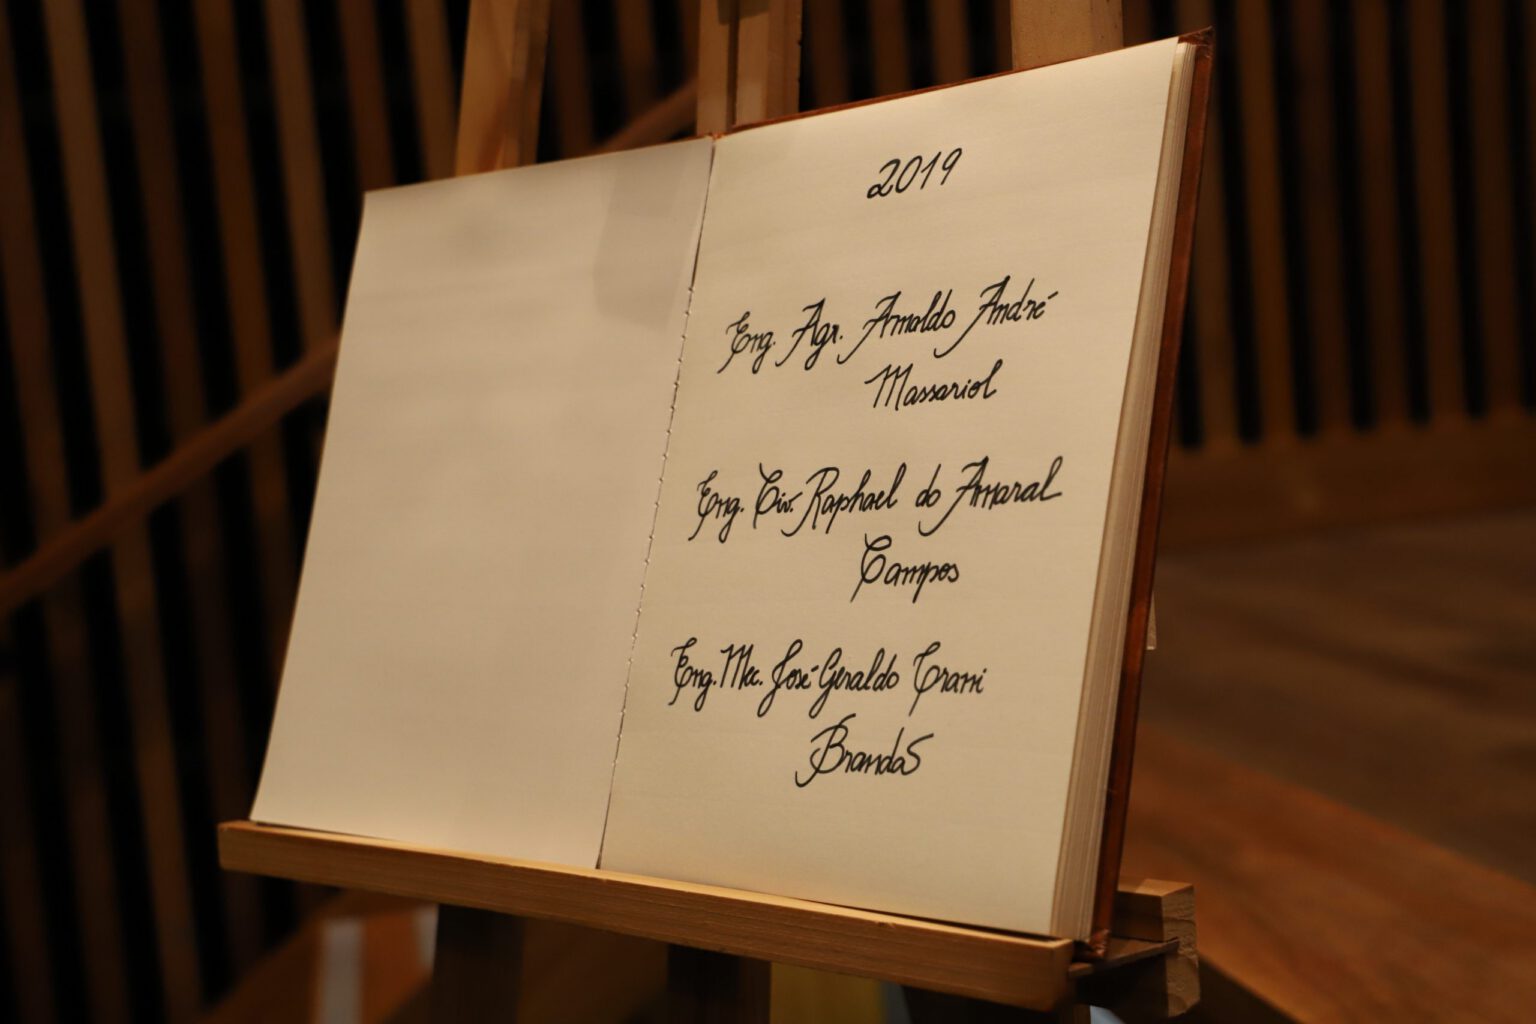 2019
Eng. Agr. Arnaldo André
Massariol
Eng. Civ. Raphael do Amaral
Campos
Eng. Mec. José Geraldo Trani
Brandão